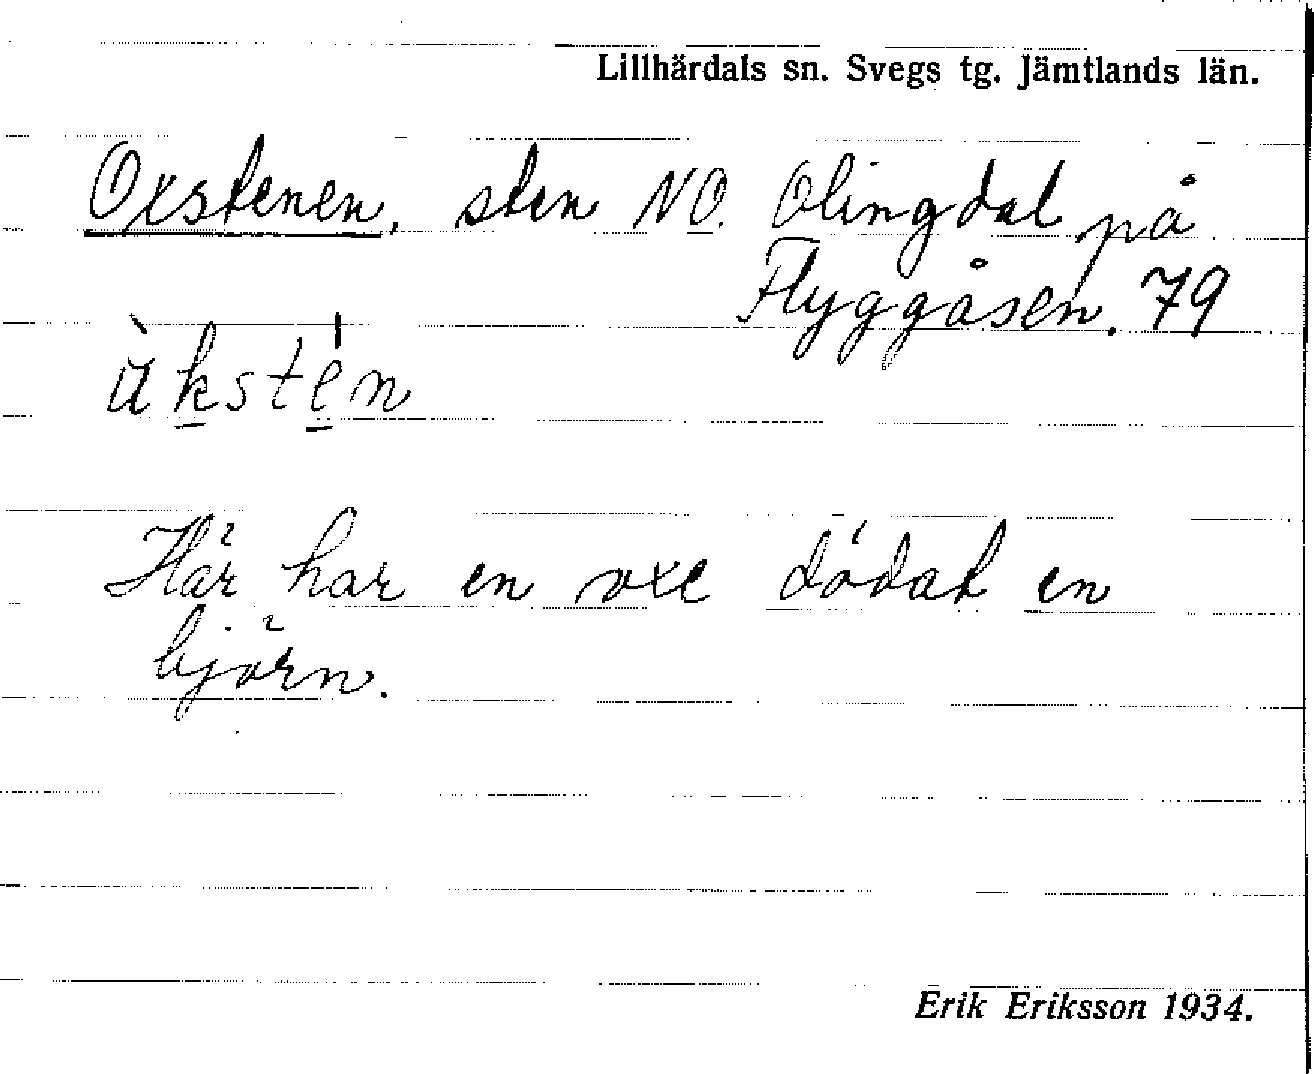 Lillhärdals sn. Svegs tg. Jämtlands län.
Oxstenen, sten NO. Olingdal på
Flyggåsen. 79
ùkstén
Här har en oxe dödat en
björn.
Erik Eriksson 1934.